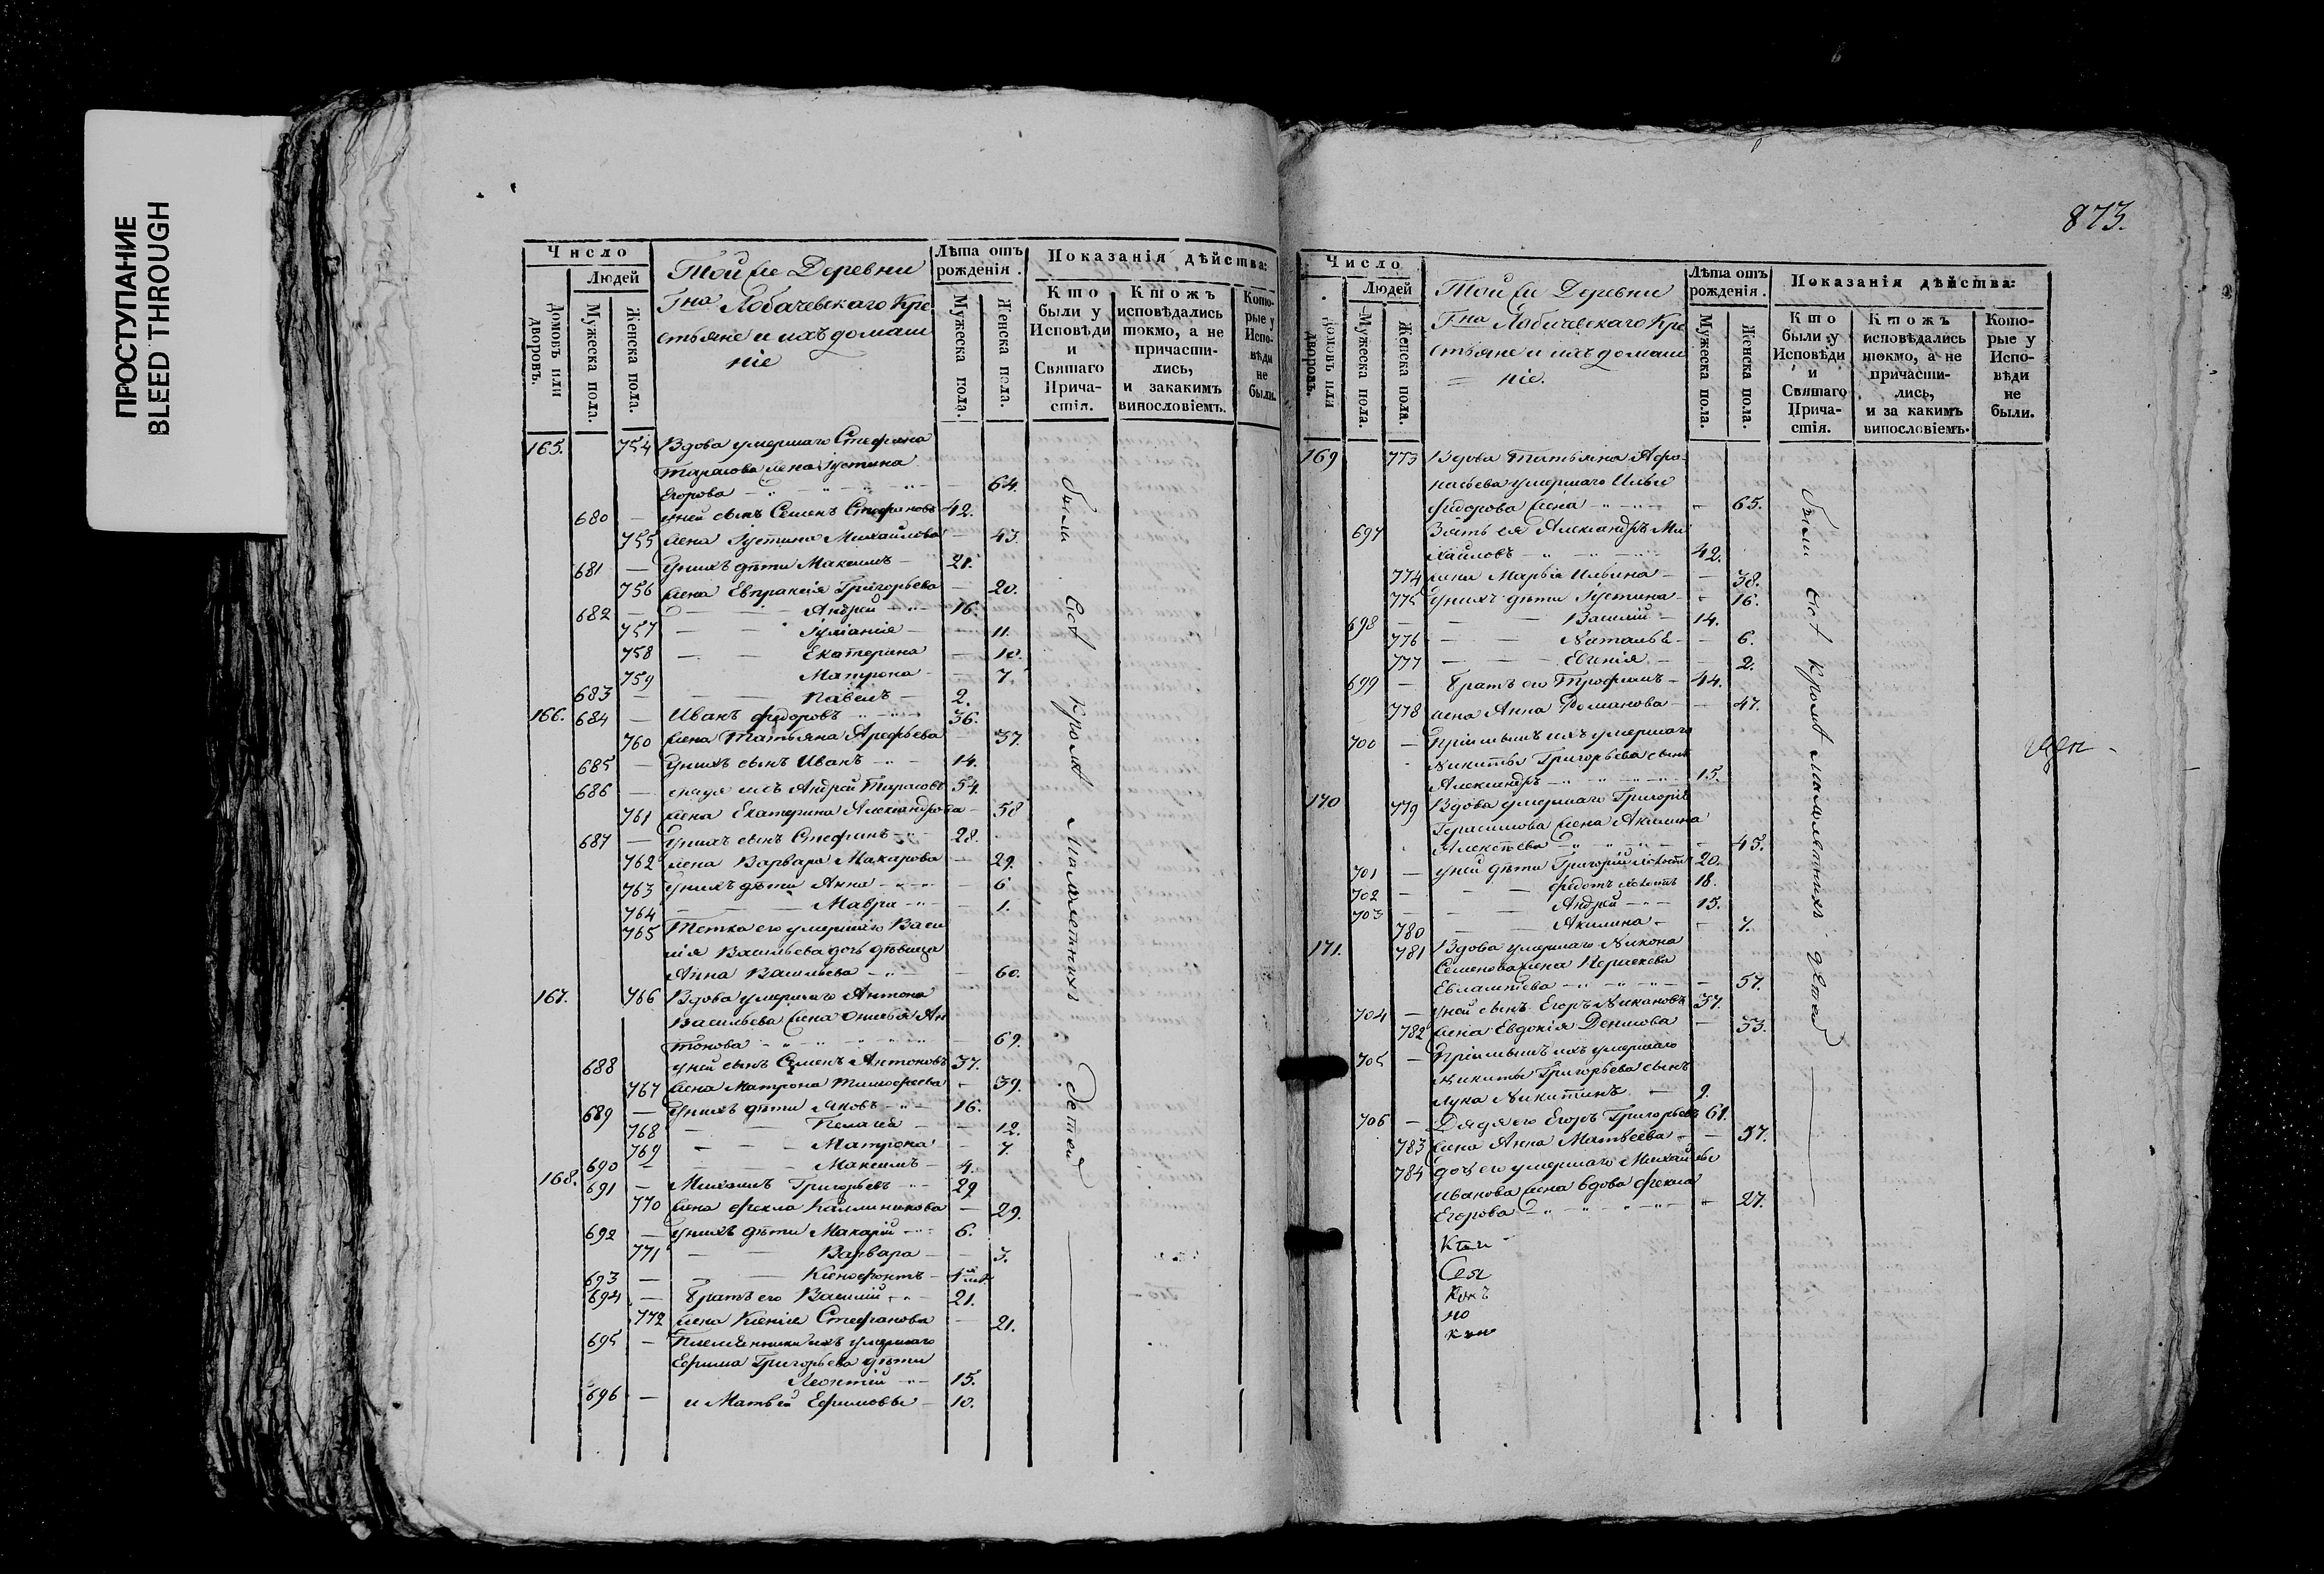 ПРОСТУПАНИЕ
BLEED THROUGH
Число
Людей
Домовъ или дворовъ.
Мужеска пола.
Женска пола.
Той же Деревни
Гна Лобачевскаго Кре
стьяне и ихъ домаш
ніе
Лѣта отъ рожденія.
Мужеска пола.
Женска пола.
Показанія дѣйства:
Кто были у Исповѣди и Святаго Прича-стія.
Ктожъ исповѣдались токмо, а не причасти-лись, и закакимъ винословіемъ.
Кото-рые у Испо-вѣди не были.
165. 754 Вдова умершаго Стефана
Тарасова жена Іустина
Егорова 64.
680 — у ней сынъ Семенъ Стефановъ 42.
755 жена Іустина Михайлова — 43.
681 — У нихъ дѣти Максимъ — 21.
756 жена Евпраксія Григорьева — 20.
682 — Андрей 16.
757 — Іуліанія — 11.
758 — Екатерина — 10.
759 Матрона — 7.
683 — Павелъ — 2.
166. 684 — Иванъ Федоровъ 36.
760 жена Татьяна Арефьева 37.
685 — У нихъ сынъ Иванъ 14.
686 — дядя ихъ Андрей Тарасовъ 54.
761 жена Екатерина Александрова — 58
687 — У нихъ сынъ Стефанъ 28.
762 жена Варвара Макарова — 29.
763 У нихъ дѣти Анна — 6
764 — Мавра — 1.
765 Тетка его умершаго Васи
лія Васильева дочь дѣвица
Анна Васильева — 60.
167. 766 Вдова умершаго Антона
Васильева жена Ан
тонова 69.
688 у ней сынъ Семенъ Антоновъ 37.
767 жена Матрона Тимофеева — 39.
689 — У нихъ дѣти Яковъ 16.
768 — Пелагея — 12.
769 — Матрона — 7.
690 — Максимъ — 4.
168. 691 — Михаилъ Григорьевъ 29
770 жена Фекла Каллиникова — 29.
692 — У нихъ дѣти Макарій 6.
771 — Варвара — 3.
693 — Ксенофонтъ —
694 — Братъ его Василій 21.
772 жена Ксенія Стефанова — 21.
695 — Племянники ихъ умершаго
Ефима Григорьева дѣти
Леонтій 15.
696 — и Матвей Ефимовы — 10.
были всѣ кромѣ малолетнихъ детей
873.
Число
Людей
Домовъ или дворовъ.
Мужеска пола.
Женска пола.
Той же Деревни
Гна Лобачевскаго Кре
стьяне и ихъ домаш
= ніе.
Лѣта отъ рожденія.
Мужеска пола.
Женска пола.
Показанія дѣйства:
Кто были у Исповѣди и Святаго Прича-стія.
Ктожъ исповѣдались токмо, а не причасти-лись, и за какимъ винословіемъ.
Кото-рые у Испо-вѣди не были.
169 773 Вдова Татьяна Афа-
насьева умершаго Ильи
Федорова жена 65.
697 Зять ея Александръ Ми
хайловъ 42.
774 жена Марья Ильина — 38.
775 У нихъ дѣти Іустина — 16.
698 — Василій — 14.
776 — Наталья — 6.
777 — Евгенія — 2.
699 — Братъ его Трофимъ — 44.
778 жена Анна Романова — 47.
700 — Пріимышъ ихъ умершаго
Никиты Григорьева сынъ
Александръ 15.
170 779 Вдова умершаго Григорія
Герасимова жена Акилина
Алексѣева 45.
701 — у ней дѣти Григорій холостъ 20.
702 — Федотъ холостъ 18.
703 — Андрей 15.
780 — Акилина — 7.
171. 781 Вдова умершаго Никона
Семенова жена Параскева
Евлампіева 57.
704 — у ней сынъ Егоръ Никоновъ 37.
782 жена Евдокія Денисова — 33.
705 — Пріимышъ ихъ умершаго
Никиты Григорьева сынъ
Лука Никитинъ — 9.
706 — Дядя его Егоръ Григорьевъ 61.
783 жена Анна Матвеева — 57.
784 дочь его умершаго Михайлы
Иванова жена вдова Фекла
Егорова 27.
были всѣ кромѣ малолѣтнихъ дѣтей